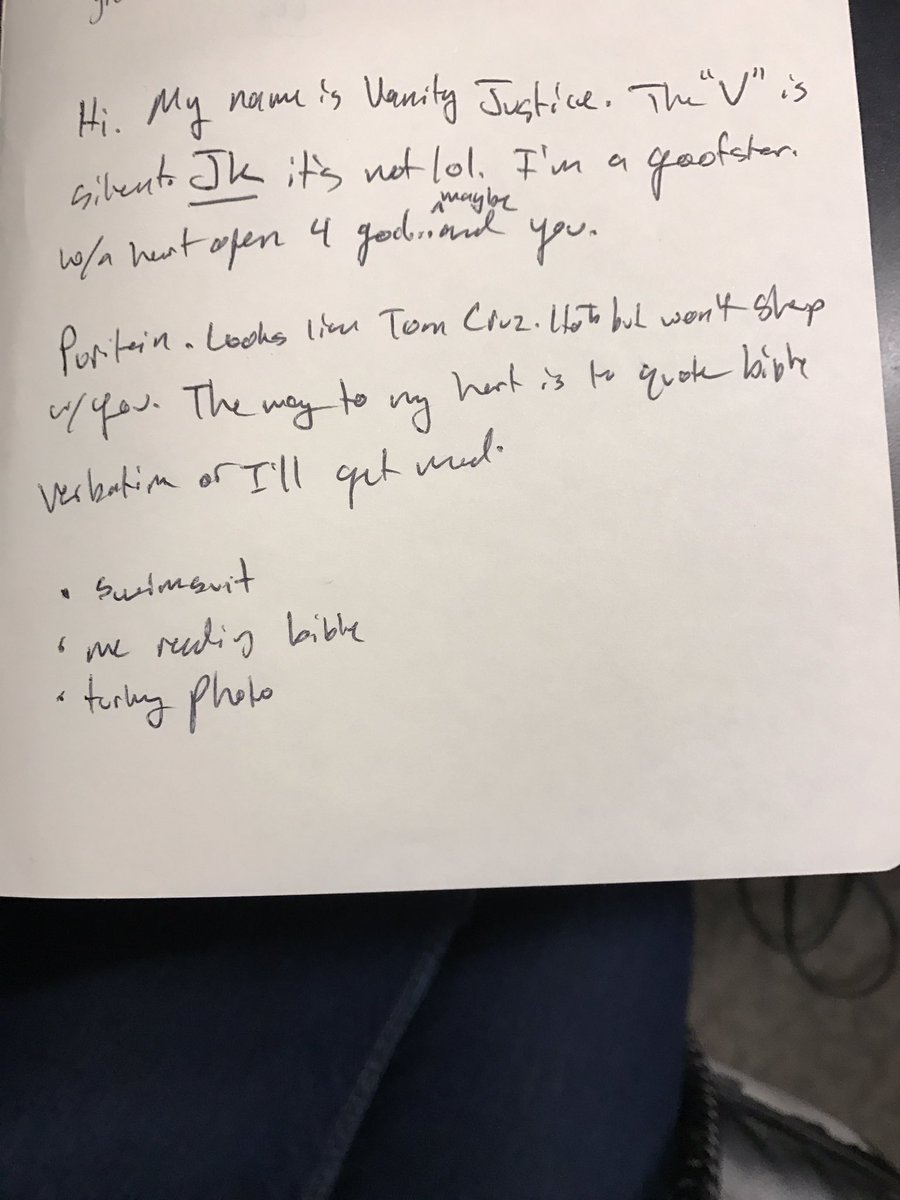 Hi. My name is Vanity Justice. The "V" is
silent. Jk it's not lol. I'm a goofster.
w/a heart open 4 god... and maybe you.
Puritain. Looks like Tom Cruz. Hot but won't sleep
w/you. The way to my heart is to quote bible
verbatim or I'll get mad.
• swimsuit
• me reading bible
• turkey photo